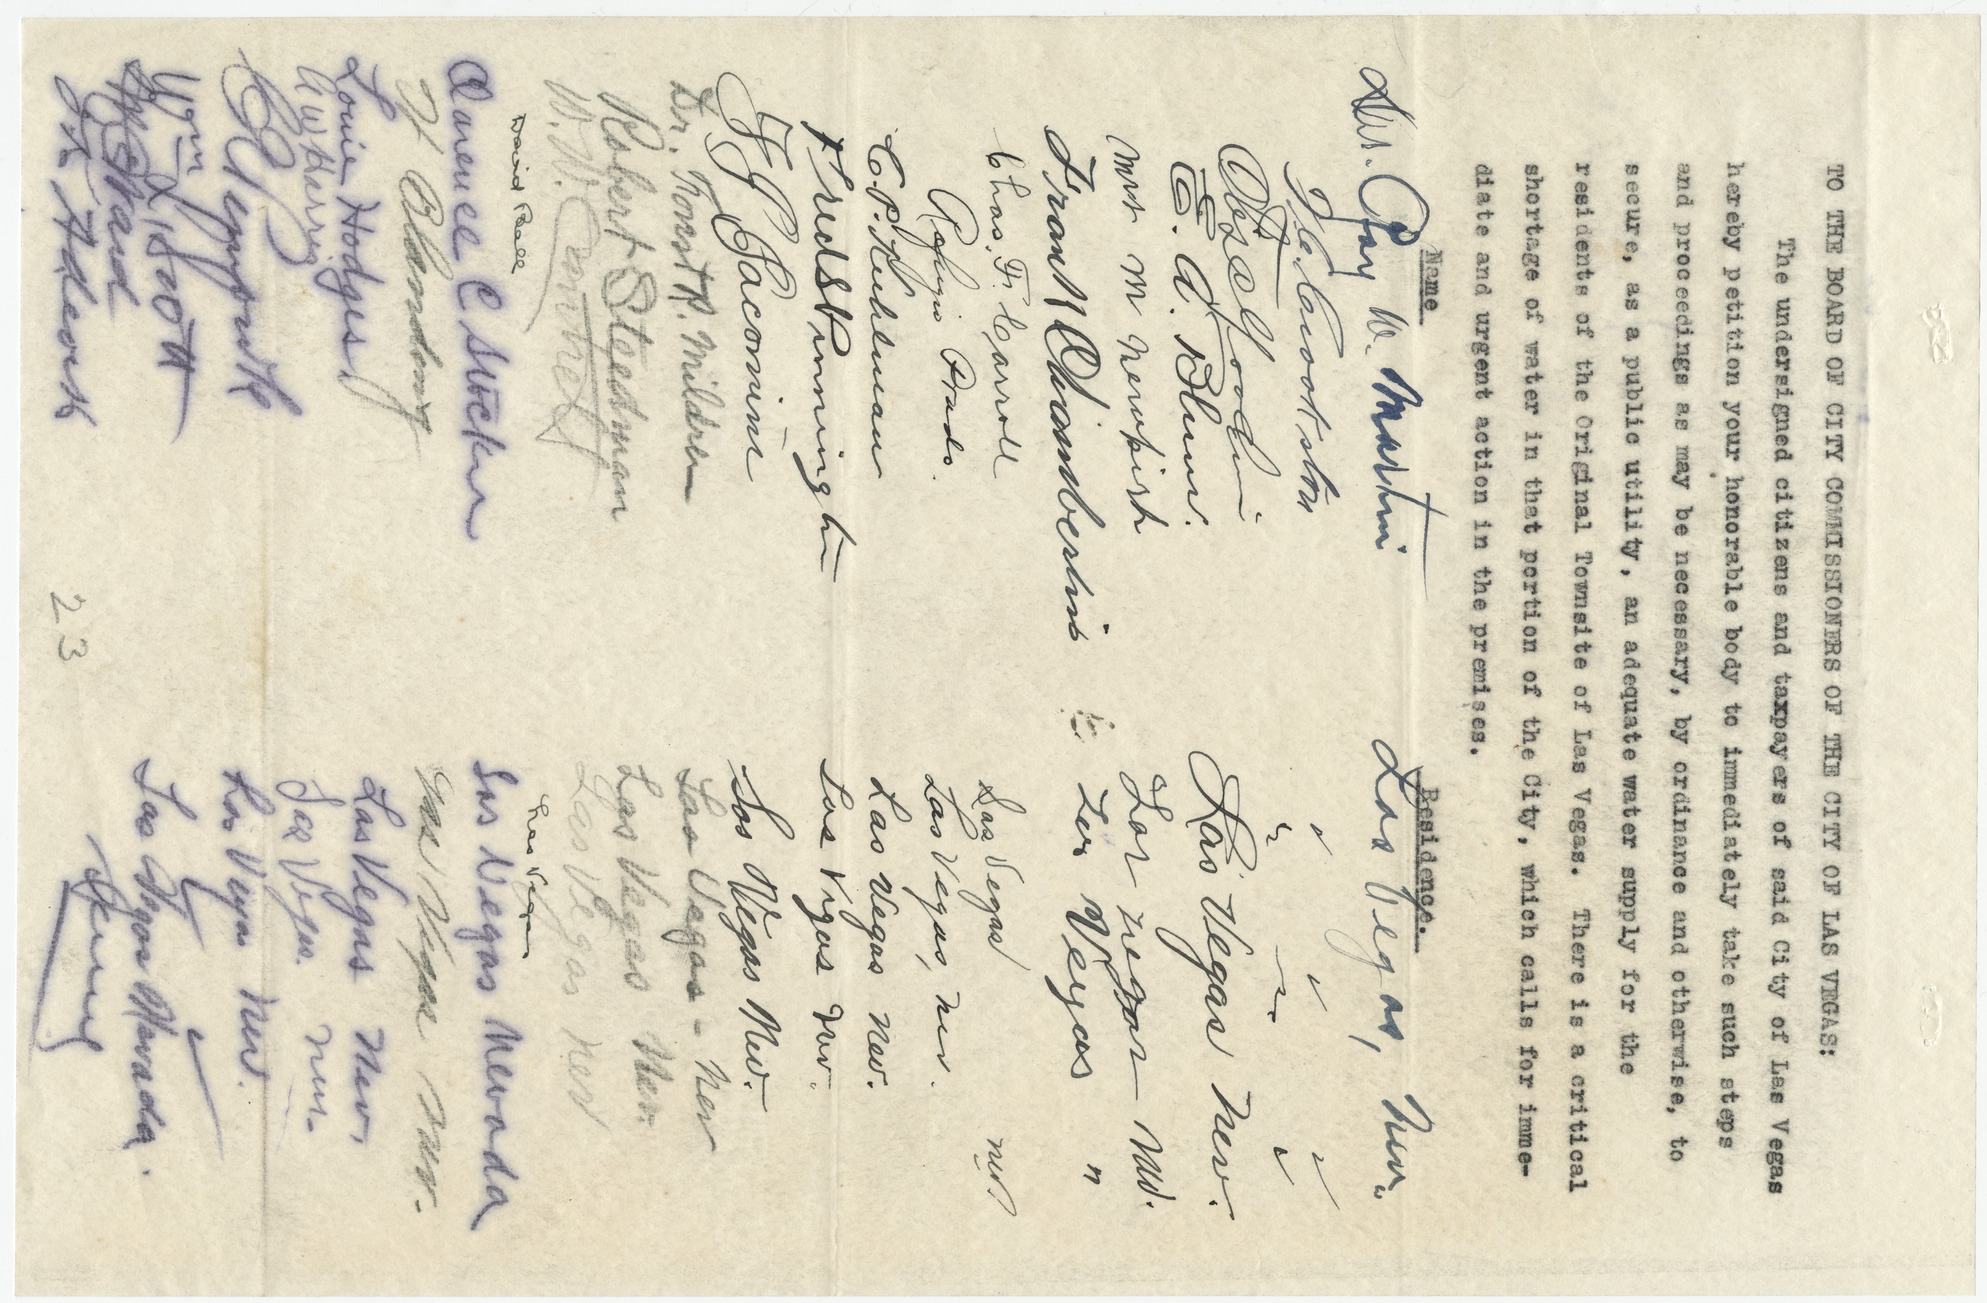 TO THE BOARD OF CITY COMMISSIONERS OF THE CITY OF LAS VEGAS:
The undersigned citizens and taxpayers of said City of Las Vegas
hereby petition your honorable body to immediately take such steps
and proceedings as may be necessary, by ordinance and otherwise, to
secure, as a public utility, an adequate water supply for the
residents of the Original Townsite of Las Vegas. There is a critical
shortage of water in that portion of the City, which calls for imme-
diate and urgent action in the premises.
Name Residence.
Roy W. Martin Las Vegas, Nev.
" " "
" "
C. A. Blum. Las Vegas Nev.
Mrs M Newkirk Las Vegas Nev.
Frank Chamberlin Las Vegas "
Chas. F. Carroll Las Vegas Nev
Prado. Las Vegas, Nev.
C.P. Kuhlman Las Vegas Nev.
Fred S Pennington Las Vegas Nev.
F G Sacomine Las Vegas Nev.
Dr. Forest R. Mildren Las Vegas - Nev
Robert Steedman Las Vegas Nev.
W.W. Las Vegas Nev
David Las Vegas
Clarence C Stocker Las Vegas Nevada
H Blanding Las Vegas Nev.
Louie Hodges Las Vegas Nev.
Las Vegas. Nev.
Las Vegas Nev.
Scott
Ward Las Vegas Nevada.
Adcock
23